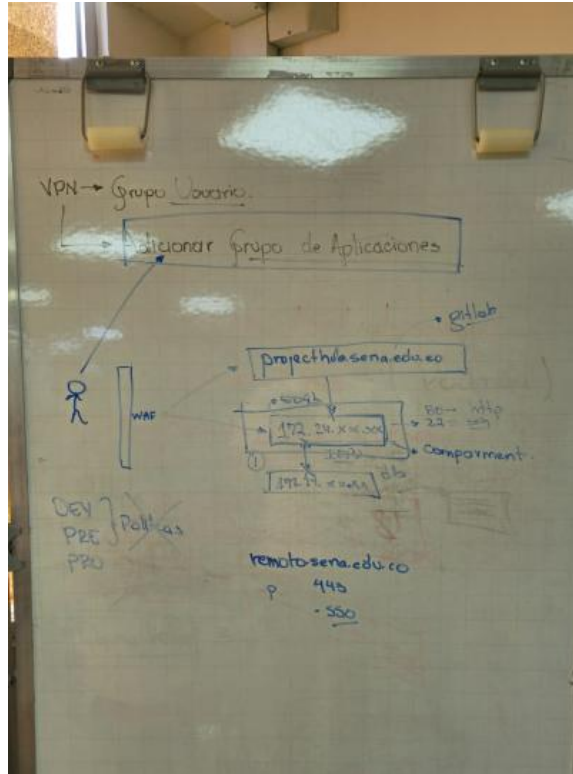 VPN → Grupo Usuario.
Adicionar Grupo de Aplicaciones
• gitlab
projecthula.sena.edu.co
WAF
172.24.xx.xxx
80 → http
22 -
• Comparment.
①
db
DEV
PRE } Politicas
PRO
remoto.sena.edu.co
P 443
- 550